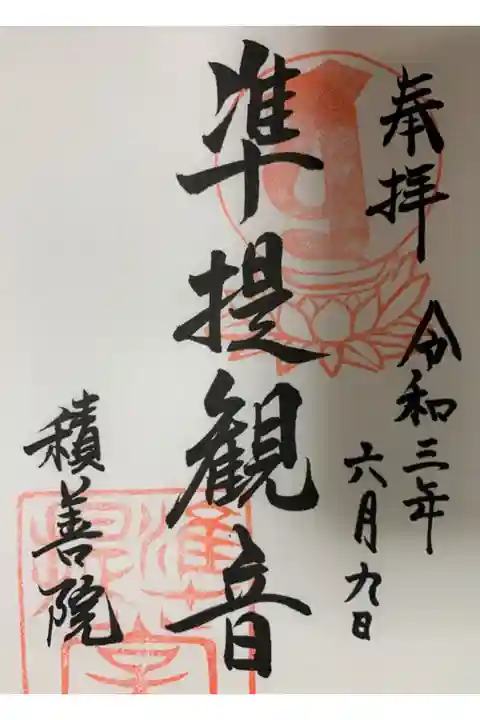 奉拝 令和三年
六月九日
凖提観音
積善院